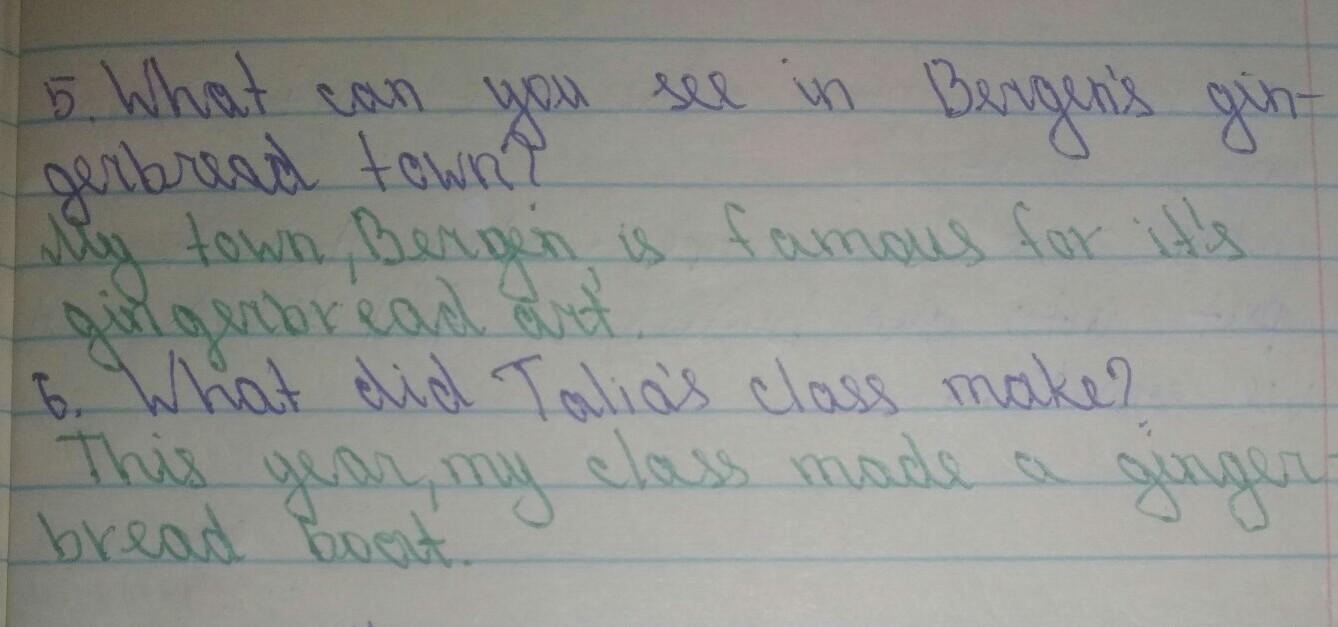 5. What can you see in Bergen's gin-
gerbread town?
My town, Bergen is famous for it's
gingerbread art.
6. What did Talia's class make?
This year, my class made a ginger-
bread boat.